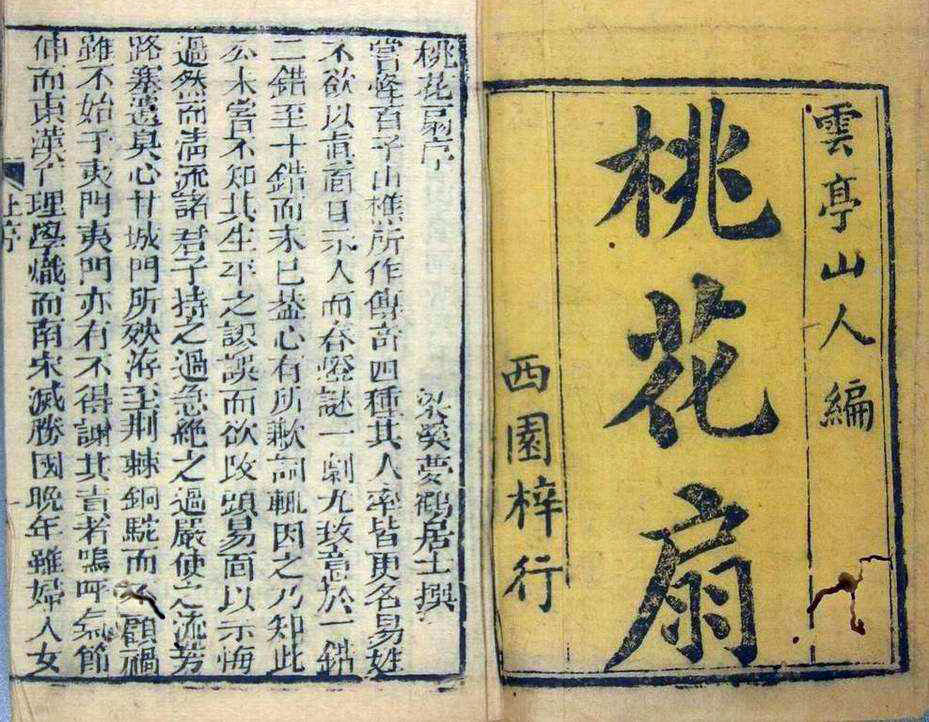 雲亭山人編
桃花扇
西園梓行
桃花扇序
梁溪夢鶴居士撰
嘗怪百子山樵所作傳奇四種其人率皆更名易姓
不欲以眞面目示人而春燈謎一劇尤致意於一錯
二錯至十錯而未已葢心有所歉詞輒因之乃知此
公未嘗不知其生平之謬誤而欲改頭易面以示悔
過然而淸流諸君子持之過急絶之過嚴使之流芳
路塞遺臭心甘城門所殃洊至荆棘銅駝而不顧禍
雖不始于夷門夷門亦有不得謝其責者嗚呼氣節
伸而東漢亡理學熾而南宋滅勝國晚年雖婦人女
上序